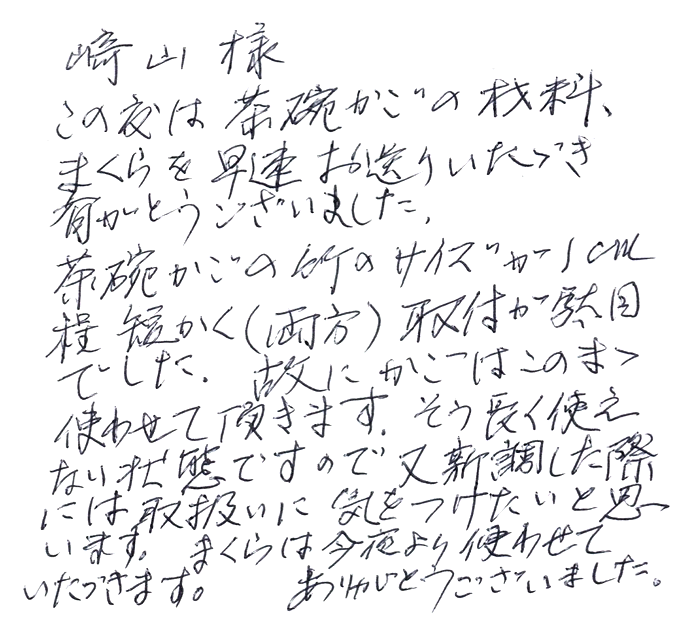 崎山 様
この度は 茶碗かごの 材料、
まくらを 早速 お送りいたゞき
有がとうございました。
茶碗かごの 竹の サイズが 1cm
程 短かく(両方) 取付が 駄目
でした. 故に かごはこのまゝ
使わせて頂きます. そう長く使え
ない状態ですので 又新調した際
には 取扱いに 気をつけたいと思
います。 まくらは今夜より使わせて
いたゞきます。 ありがとうございました。